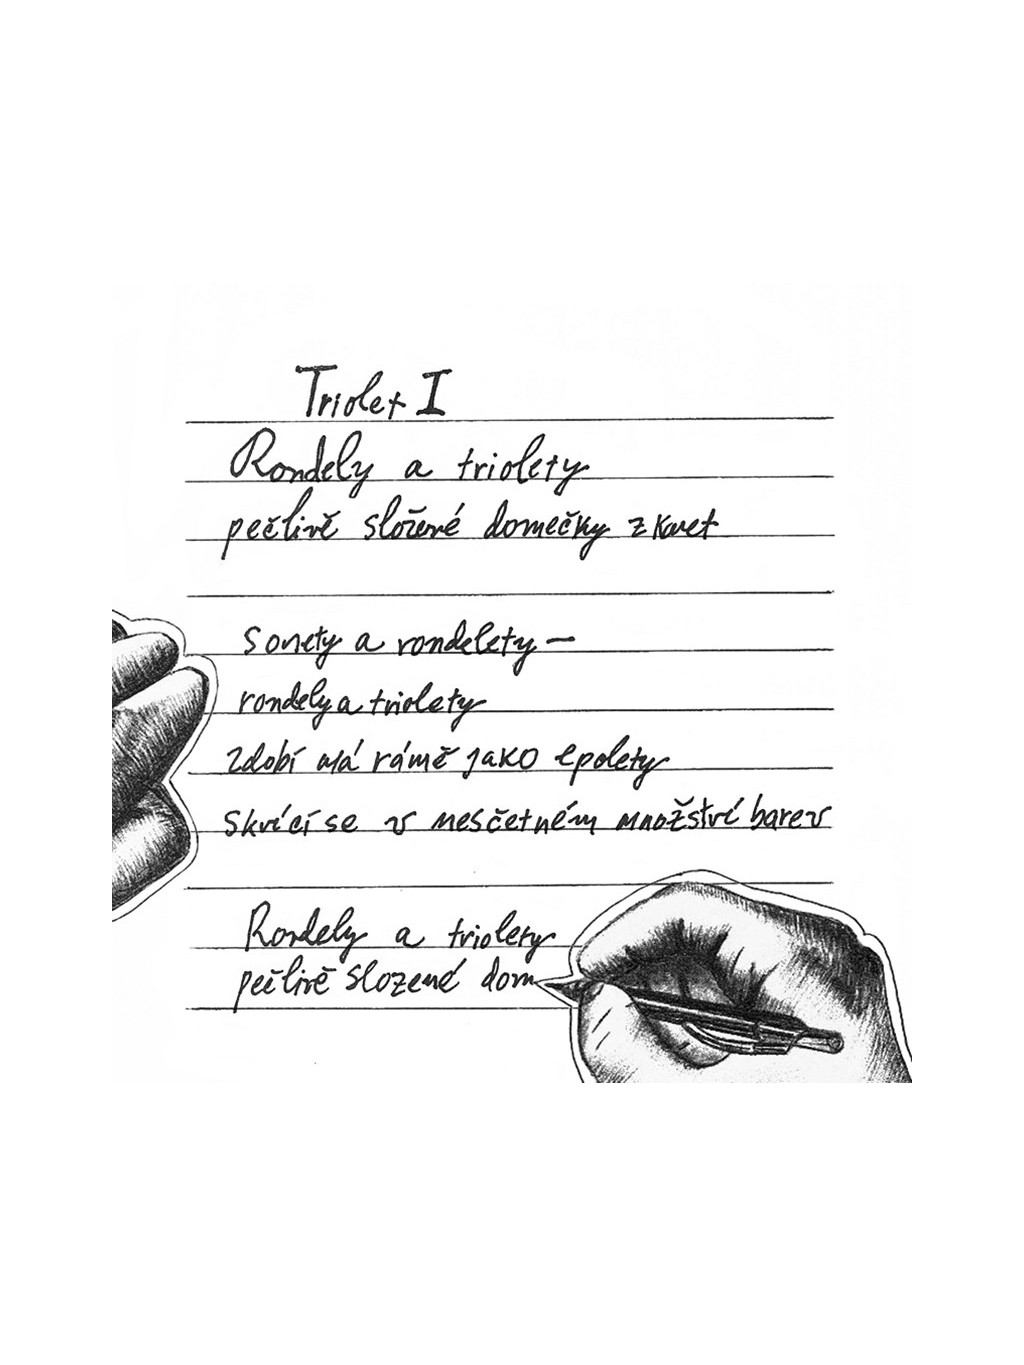 Triolet I
Rondely a triolety
pečlivě složené domečky z karet
Sonety a rondelety —
rondely a triolety
zdobí má rámě jako epolety
skvící se v nesčetném množství barev
Rondely a triolety
pečlivě složené dom